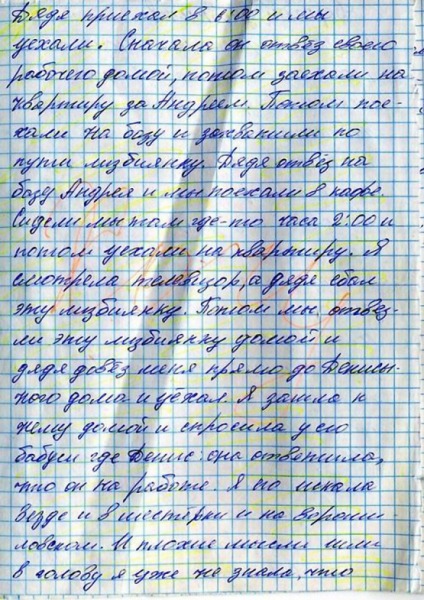 Дядя приехал в 6:00 и мы
уехали. Сначала он отвёз своего
рабочего домой, потом заехали на
квартиру за Андреем. Потом пое-
хали на базу и захватили по
пути лизбиянку. Дядя отвёз на
базу Андрея и мы поехали в кафе.
Сидели мы там где-то часа 2:00 и
потом уехали на квартиру. Я
смотрела телевизор, а дядя ебал
эту лизбиянку. Потом мы отвез-
ли эту лизбиянку домой и
дядя довёз меня прямо до Денисы-
ного дома и уехал. Я зашла к
нему домой и спросила у его
бабули где Денис: она ответила,
что он на работе. Я по искала
везде и в шестёрки и на вороши-
ловском. И плохие мысли шли
в голову я уже не знала, что